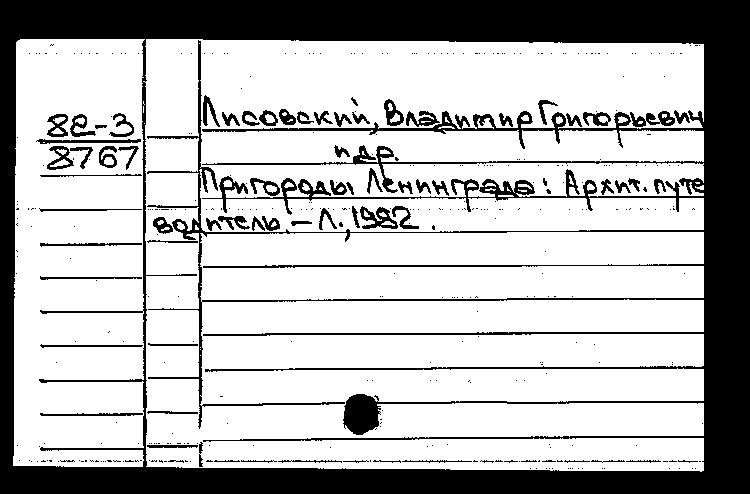 82-3
8767
Лисовский, Владимир Григорьевич
и др.
Пригороды Ленинграда: Архит. путе
водитель. – Л., 1982.